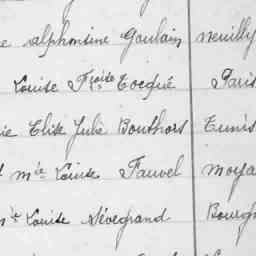 e Alphonsine Goulain Neuilly
Louise Fçoise Tocqué Paris
ie Elise Julie Bouthors Tunis
Mie Louise Fauvel Moya
Louise Sévegrand Bourg